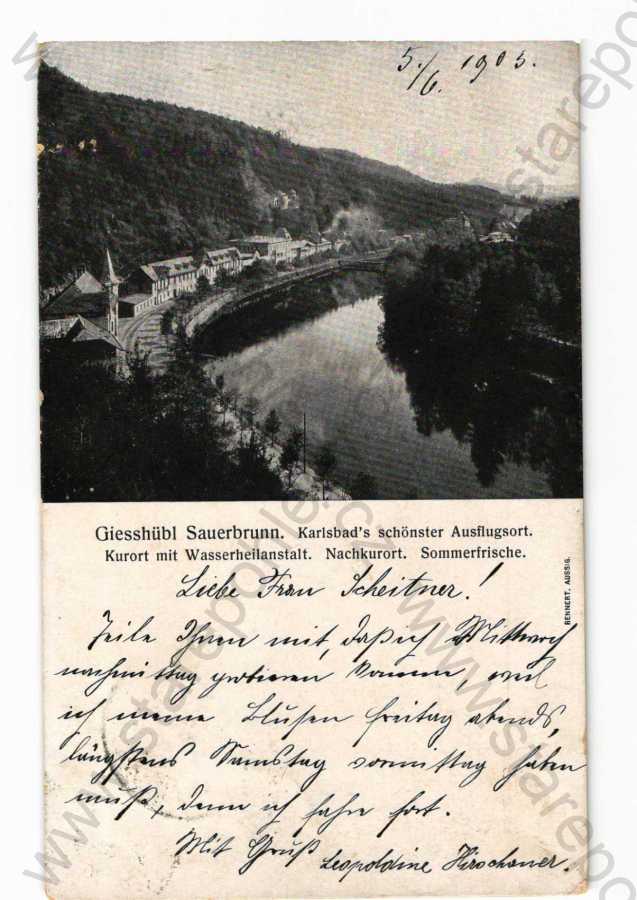 5./6. 1903.
Giesshübl Sauerbrunn. Karlsbad's schönster Ausflugsort.
Kurort mit Wasserheilanstalt. Nachkurort. Sommerfrische.
RENNERT, AUSSIG.
Liebe Frau Scheitner!
Teile Ihnen mit, daß ich Mittwoch
nachmittag probieren komme, weil
ich meine Blusen freitag abends,
längstens Samstag vormittag haben
muß, denn ich fahre fort.
Mit Gruß
Leopoldine
www.starepohledy.cz